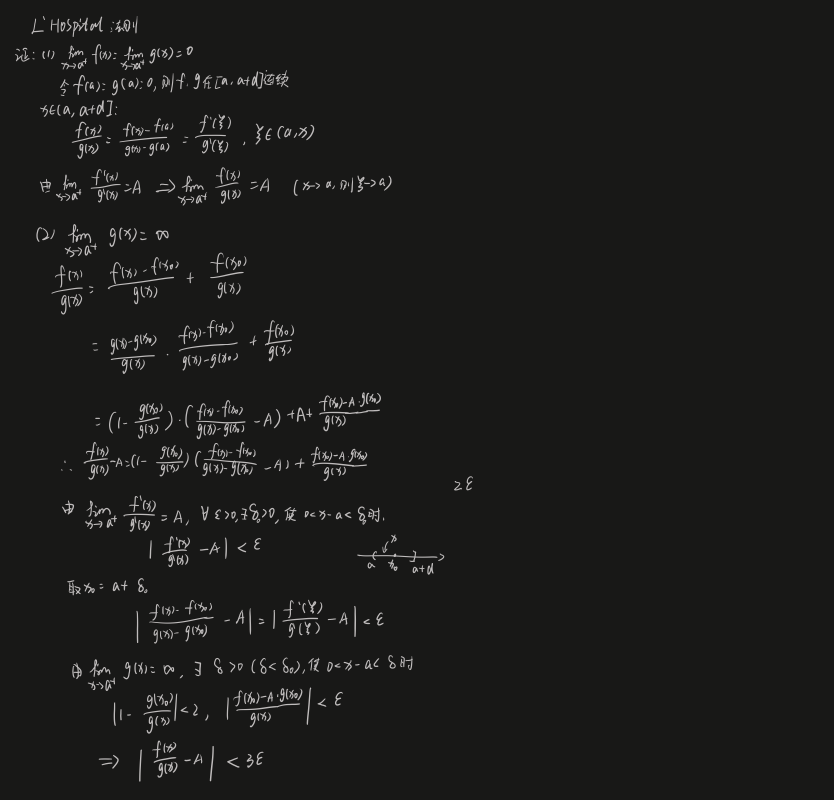 L'Hospital 法则
证: (1) lim_{x→a⁺} f(x) = lim_{x→a⁺} g(x) = 0
令 f(a) = g(a) = 0, 则 f, g 在[a, a+d]连续
x∈(a, a+d]:
f(x)/g(x) = (f(x)-f(a))/(g(x)-g(a)) = f'(ξ)/g'(ξ), ξ∈(a,x)
由 lim_{x→a⁺} f'(x)/g'(x) = A ⇒ lim_{x→a⁺} f(x)/g(x) = A (x→a, 则 ξ→a)
(2) lim_{x→a⁺} g(x) = ∞
f(x)/g(x) = (f(x)-f(x₀))/g(x) + f(x₀)/g(x)
= (g(x)-g(x₀))/g(x) · (f(x)-f(x₀))/(g(x)-g(x₀)) + f(x₀)/g(x)
= (1 - g(x₀)/g(x)) · ((f(x)-f(x₀))/(g(x)-g(x₀)) - A) + A + (f(x₀)-A·g(x₀))/g(x)
∴ f(x)/g(x) - A = (1 - g(x₀)/g(x)) ((f(x)-f(x₀))/(g(x)-g(x₀)) - A) + (f(x₀)-A·g(x₀))/g(x)
2ε
由 lim_{x→a⁺} f'(x)/g'(x) = A, ∀ε>0, ∃δ₀>0, 使 0<x-a<δ₀时,
|f'(x)/g'(x) - A| < ε
x
a x₀ a+d
取x₀ = a+δ₀
|(f(x)-f(x₀))/(g(x)-g(x₀)) - A| = |f'(ξ)/g'(ξ) - A| < ε
由 lim_{x→a⁺} g(x) = ∞, ∃ δ>0 (δ<δ₀), 使 0<x-a<δ时
|1 - g(x₀)/g(x)| < 2, |(f(x₀)-A·g(x₀))/g(x)| < ε
⇒ |f(x)/g(x) - A| < 3ε